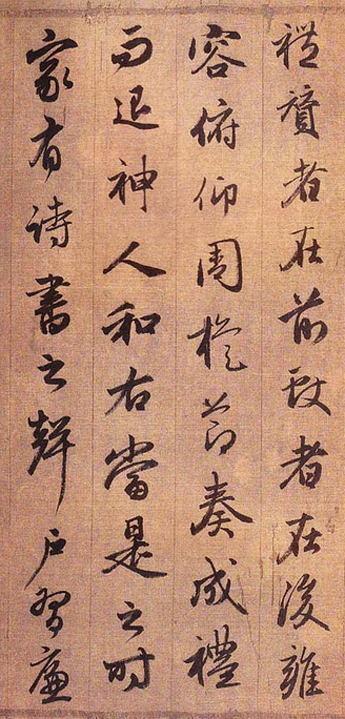 禮者在前者在後雍
容俯仰周旋節奏成禮
而退神人和右當是之時
家有詩書之聲戶習廉